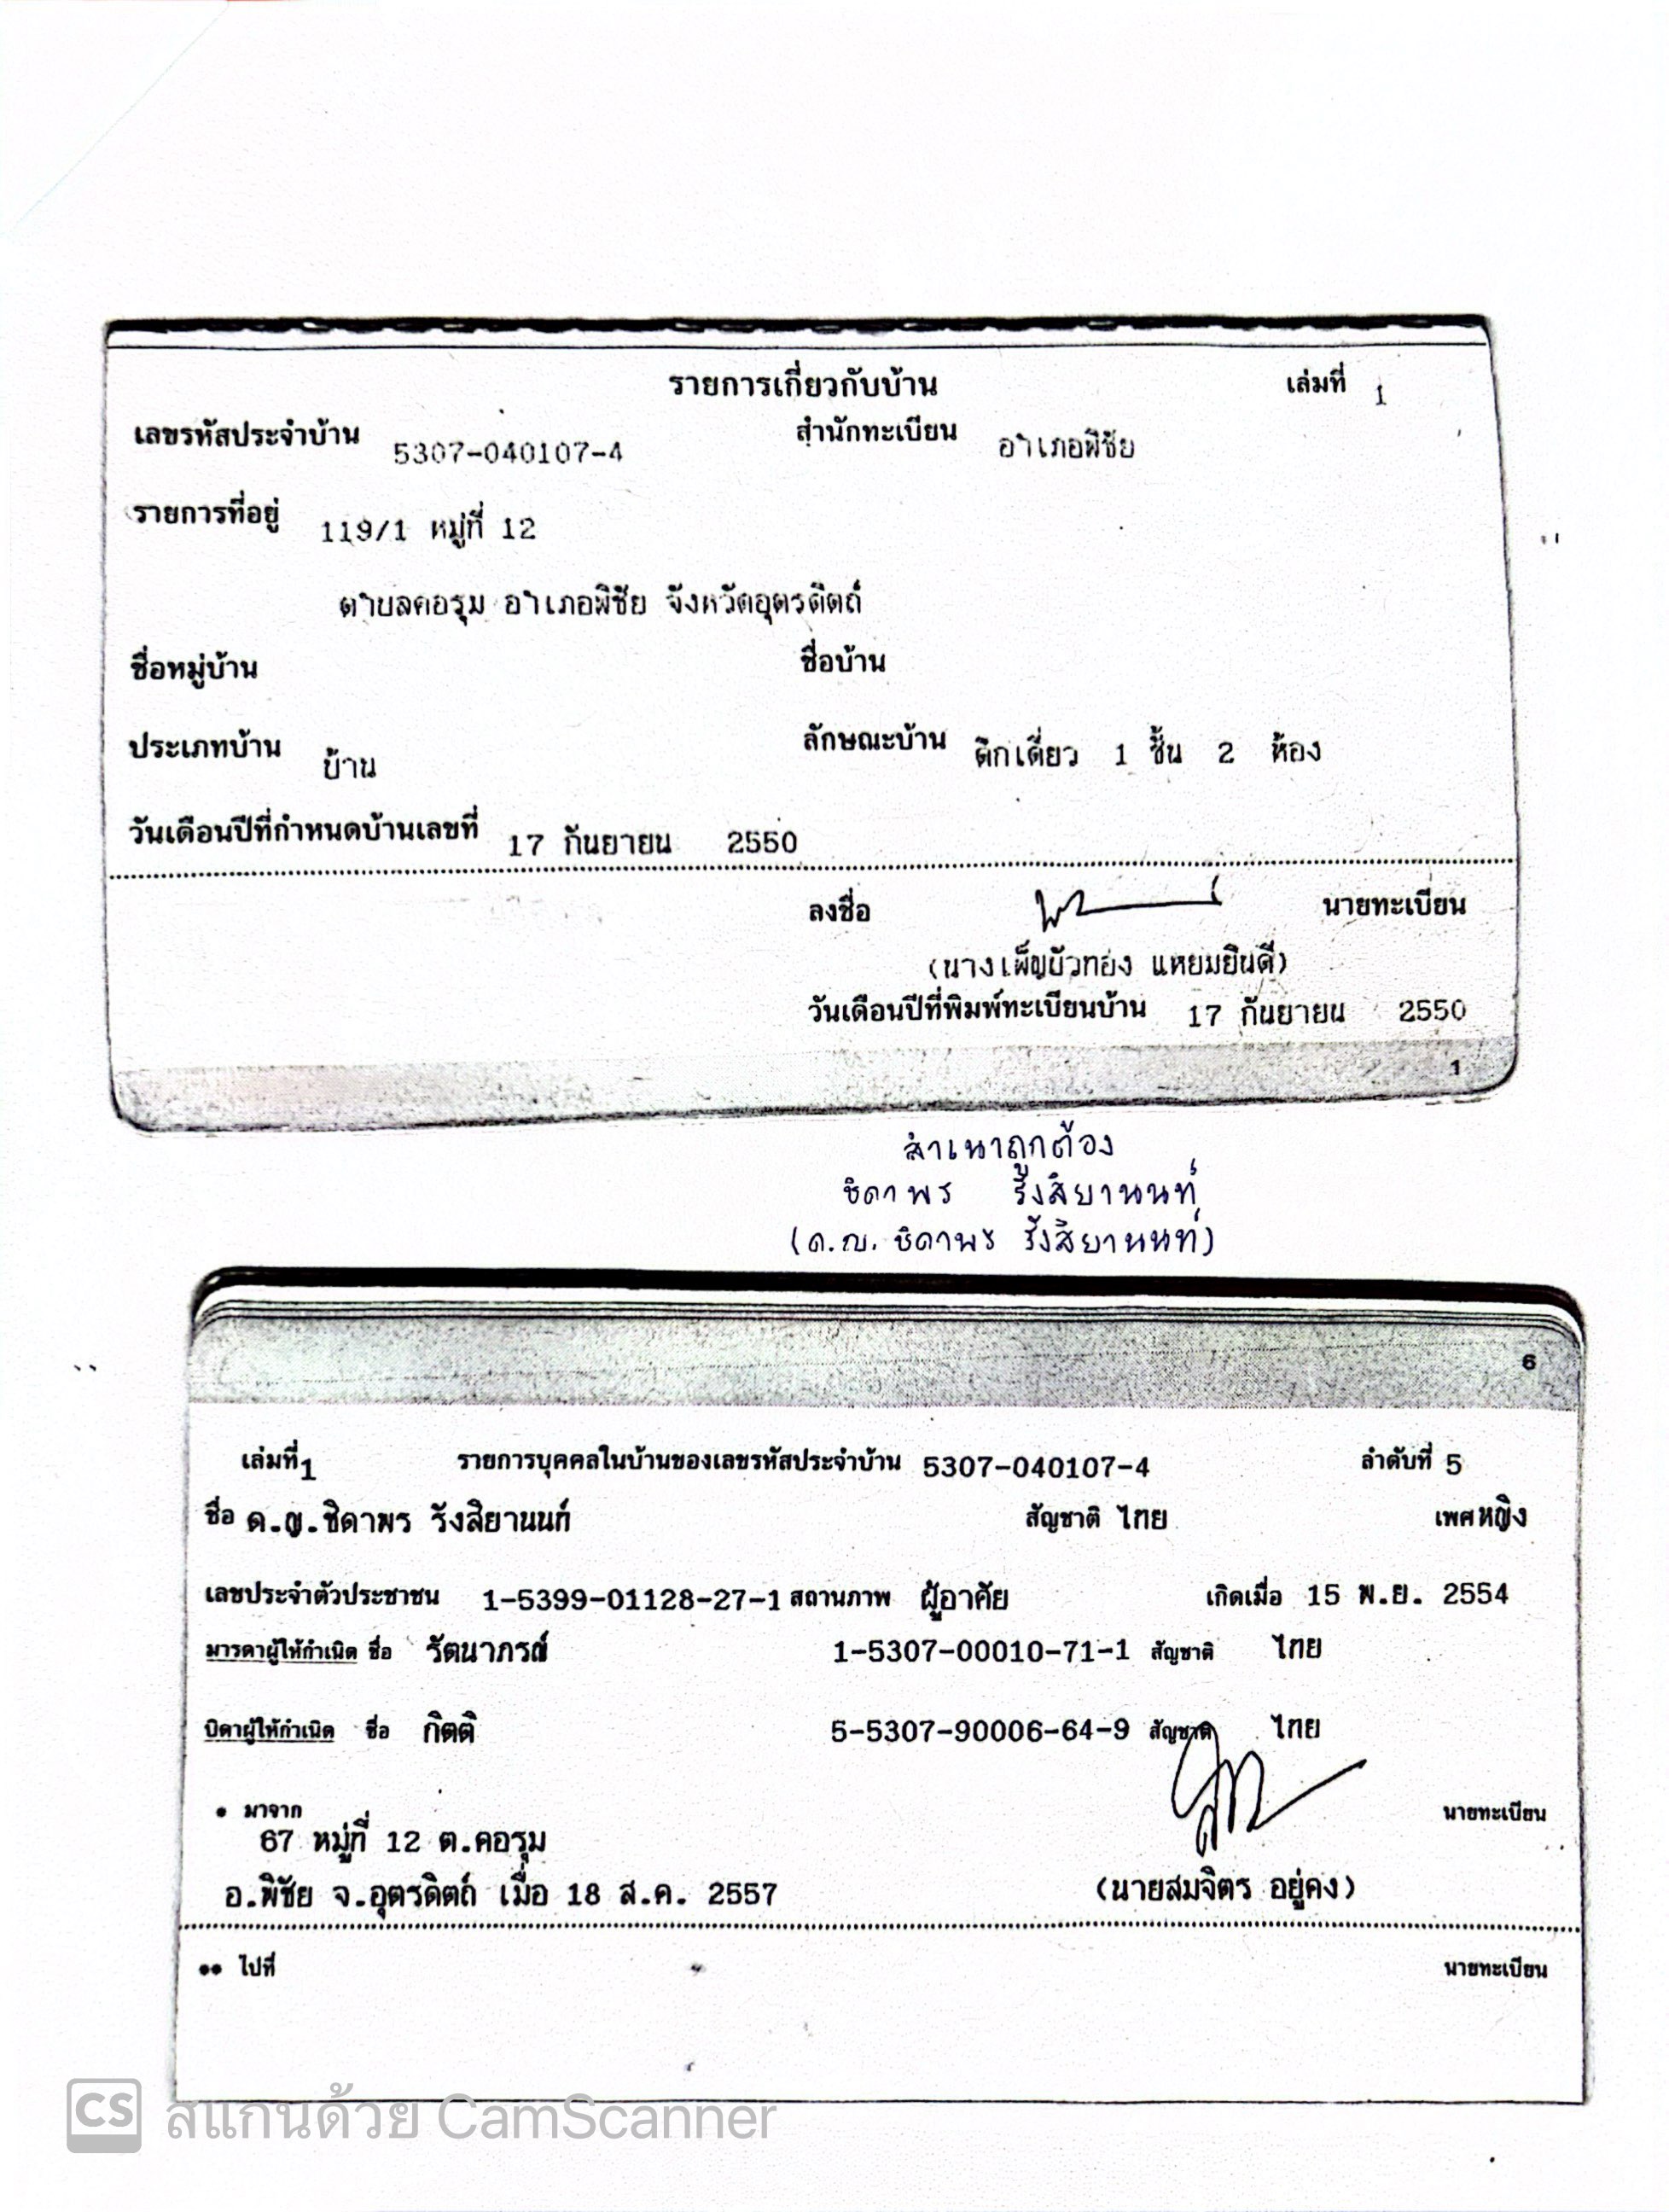 รายการเกี่ยวกับบ้าน เล่มที่ 1
เลขรหัสประจำบ้าน 5307-040107-4 สำนักทะเบียน อำเภอพิชัย
รายการที่อยู่ 119/1 หมู่ที่ 12
ตำบลคอรุม อำเภอพิชัย จังหวัดอุตรดิตถ์
ชื่อหมู่บ้าน ชื่อบ้าน
ประเภทบ้าน บ้าน ลักษณะบ้าน ตึกเดี่ยว 1 ชั้น 2 ห้อง
วันเดือนปีที่กำหนดบ้านเลขที่ 17 กันยายน 2550
ลงชื่อ นายทะเบียน
(นางเพ็ญบัวทอง แหยมยินดี)
วันเดือนปีที่พิมพ์ทะเบียนบ้าน 17 กันยายน 2550
1
สำเนาถูกต้อง
ชิดาพร รังสิยานนท์
(ด.ญ. ชิดาพร รังสิยานนท์)
6
เล่มที่ 1 รายการบุคคลในบ้านของเลขรหัสประจำบ้าน 5307-040107-4 ลำดับที่ 5
ชื่อ ด.ญ.ชิดาพร รังสิยานนท์ สัญชาติ ไทย เพศ หญิง
เลขประจำตัวประชาชน 1-5399-01128-27-1 สถานภาพ ผู้อาศัย เกิดเมื่อ 15 พ.ย. 2554
มารดาผู้ให้กำเนิด ชื่อ รัตนาภรณ์ 1-5307-00010-71-1 สัญชาติ ไทย
บิดาผู้ให้กำเนิด ชื่อ กิตติ 5-5307-90006-64-9 สัญชาติ ไทย
• มาจาก นายทะเบียน
67 หมู่ที่ 12 ต.คอรุม
อ.พิชัย จ.อุตรดิตถ์ เมื่อ 18 ส.ค. 2557 (นายสมจิตร อยู่คง)
•• ไปที่ นายทะเบียน
CS สแกนด้วย CamScanner